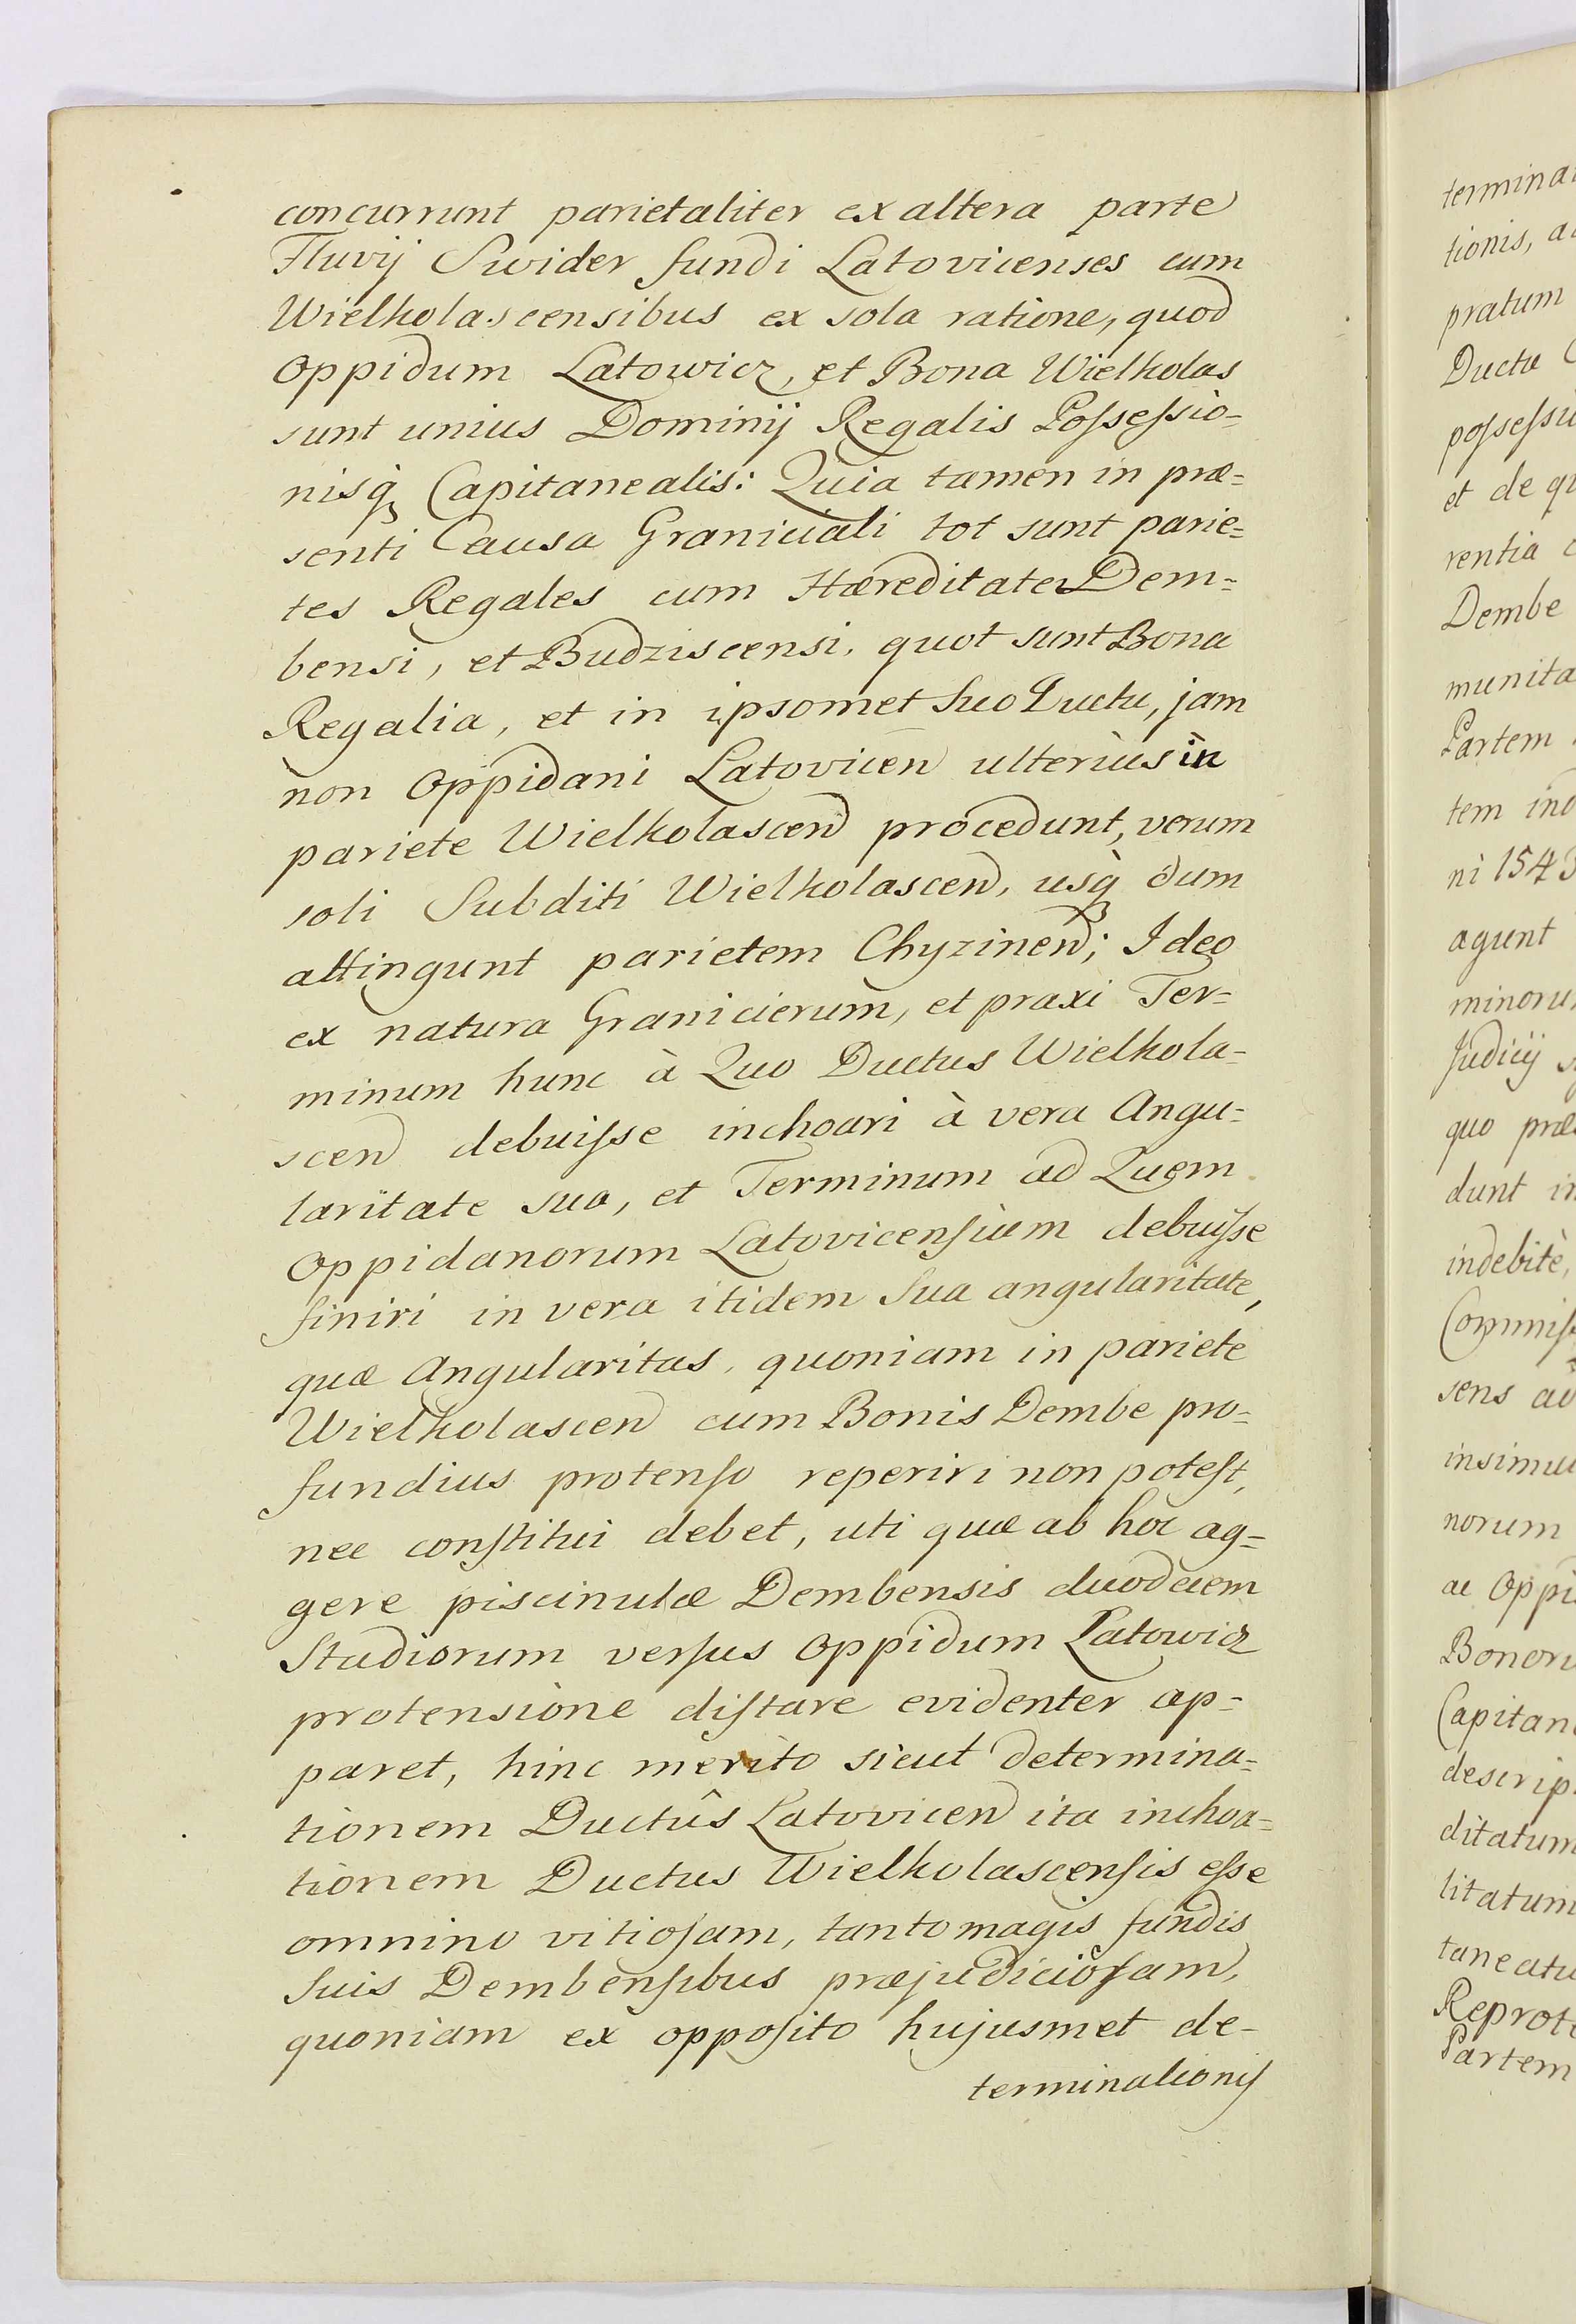 concurrunt parietaliter ex altera parte
Fluvij Swider fundi Latovicenses cum
Wielholascensibus ex sola ratione, quod
Oppidum Latowicz, et Bona Wielholas
sunt unius Dominij Regalis Poſseſsio=
nisq; Capitanealis: Quia tamen in præ=
senti Causa Graniciali tot sunt parie=
tes Regales cum Hæreditate Dem=
bensi, et Budziscensi, quot sunt Bona
Regalia, et in ipsomet suo Ductu, jam
non Oppidani Latovicen ulterius in
pariete Wielkolascen procedunt, verum
soli Subditi Wielholascen, usq; dum
attingunt parietem Chyzinen; Ideo
ex natura Granicierum, et praxi Ter=
minum hunc à Quo Ductus Wielkola=
scen debuiſse inchoari à vera Angu=
laritate sua, et Terminum ad Quem
Oppidanorum Latovicenſium debuiſse
finiri in vera itidem sua angularitate,
quæ Angularitas, quoniam in pariete
Wielkolascen cum Bonis Dembe pro=
fundius protenſo reperiri non poteſt,
nec conſtitui debet, uti quæ ab hoc ag=
gere piscinulæ Dembensis duodecem
Studiorum verſus Oppidum Latowicz
protensione diſtare evidenter ap=
paret, hinc merito sicut determina=
tionem Ductûs Latovicen ita inchoa=
tionem Ductus Wielkolascenſis eſse
omnino vitioſam, tanto magis fundis
suis Dembenſibus præjudicioſam,
quoniam ex oppoſito hujusmet de=
terminationiſ
termina
tionis, a
pratum
Ductu
poſseſsi
et de q
rentia
Dembe
munita
Partem
tem in
ni 1543
agunt
minoru
Judicij
quo præ
dunt in
indebitè,
Commiſ
sens ad
insimu
norum
ac Oppi
Bonoru
Capitan
descrip
ditatum
litatum
taneatu
Reprote
Partem